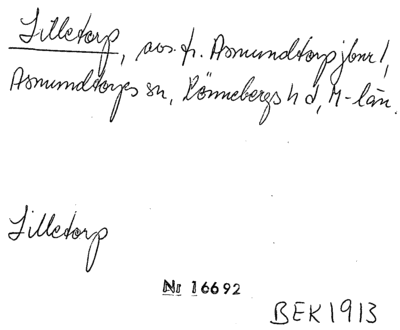 Lilletorp, avs. fr. Asmundtorp jbnr 1,
Asmundtorps sn, Rönnebergs hd, M-län.
Lilletorp
Nr 16692
BEK 1913